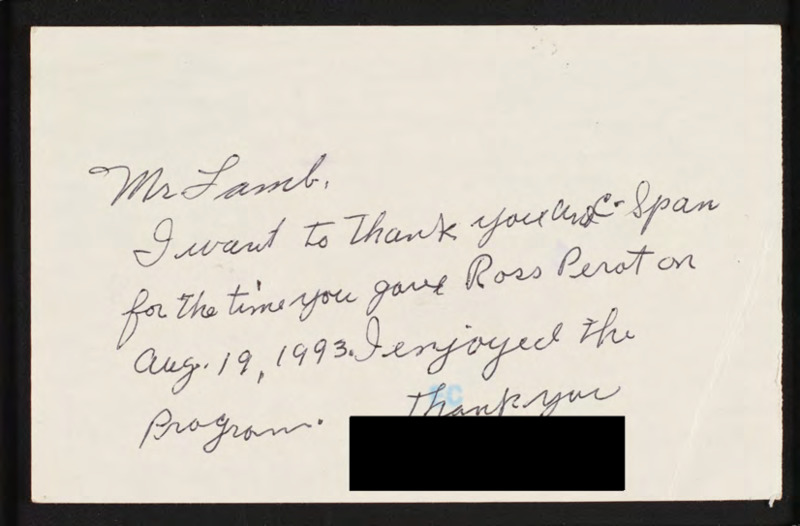 Mr Lamb,
I want to thank you and C-Span
for the time you gave Ross Perot on
Aug. 19, 1993. I enjoyed the
Program. Thank you